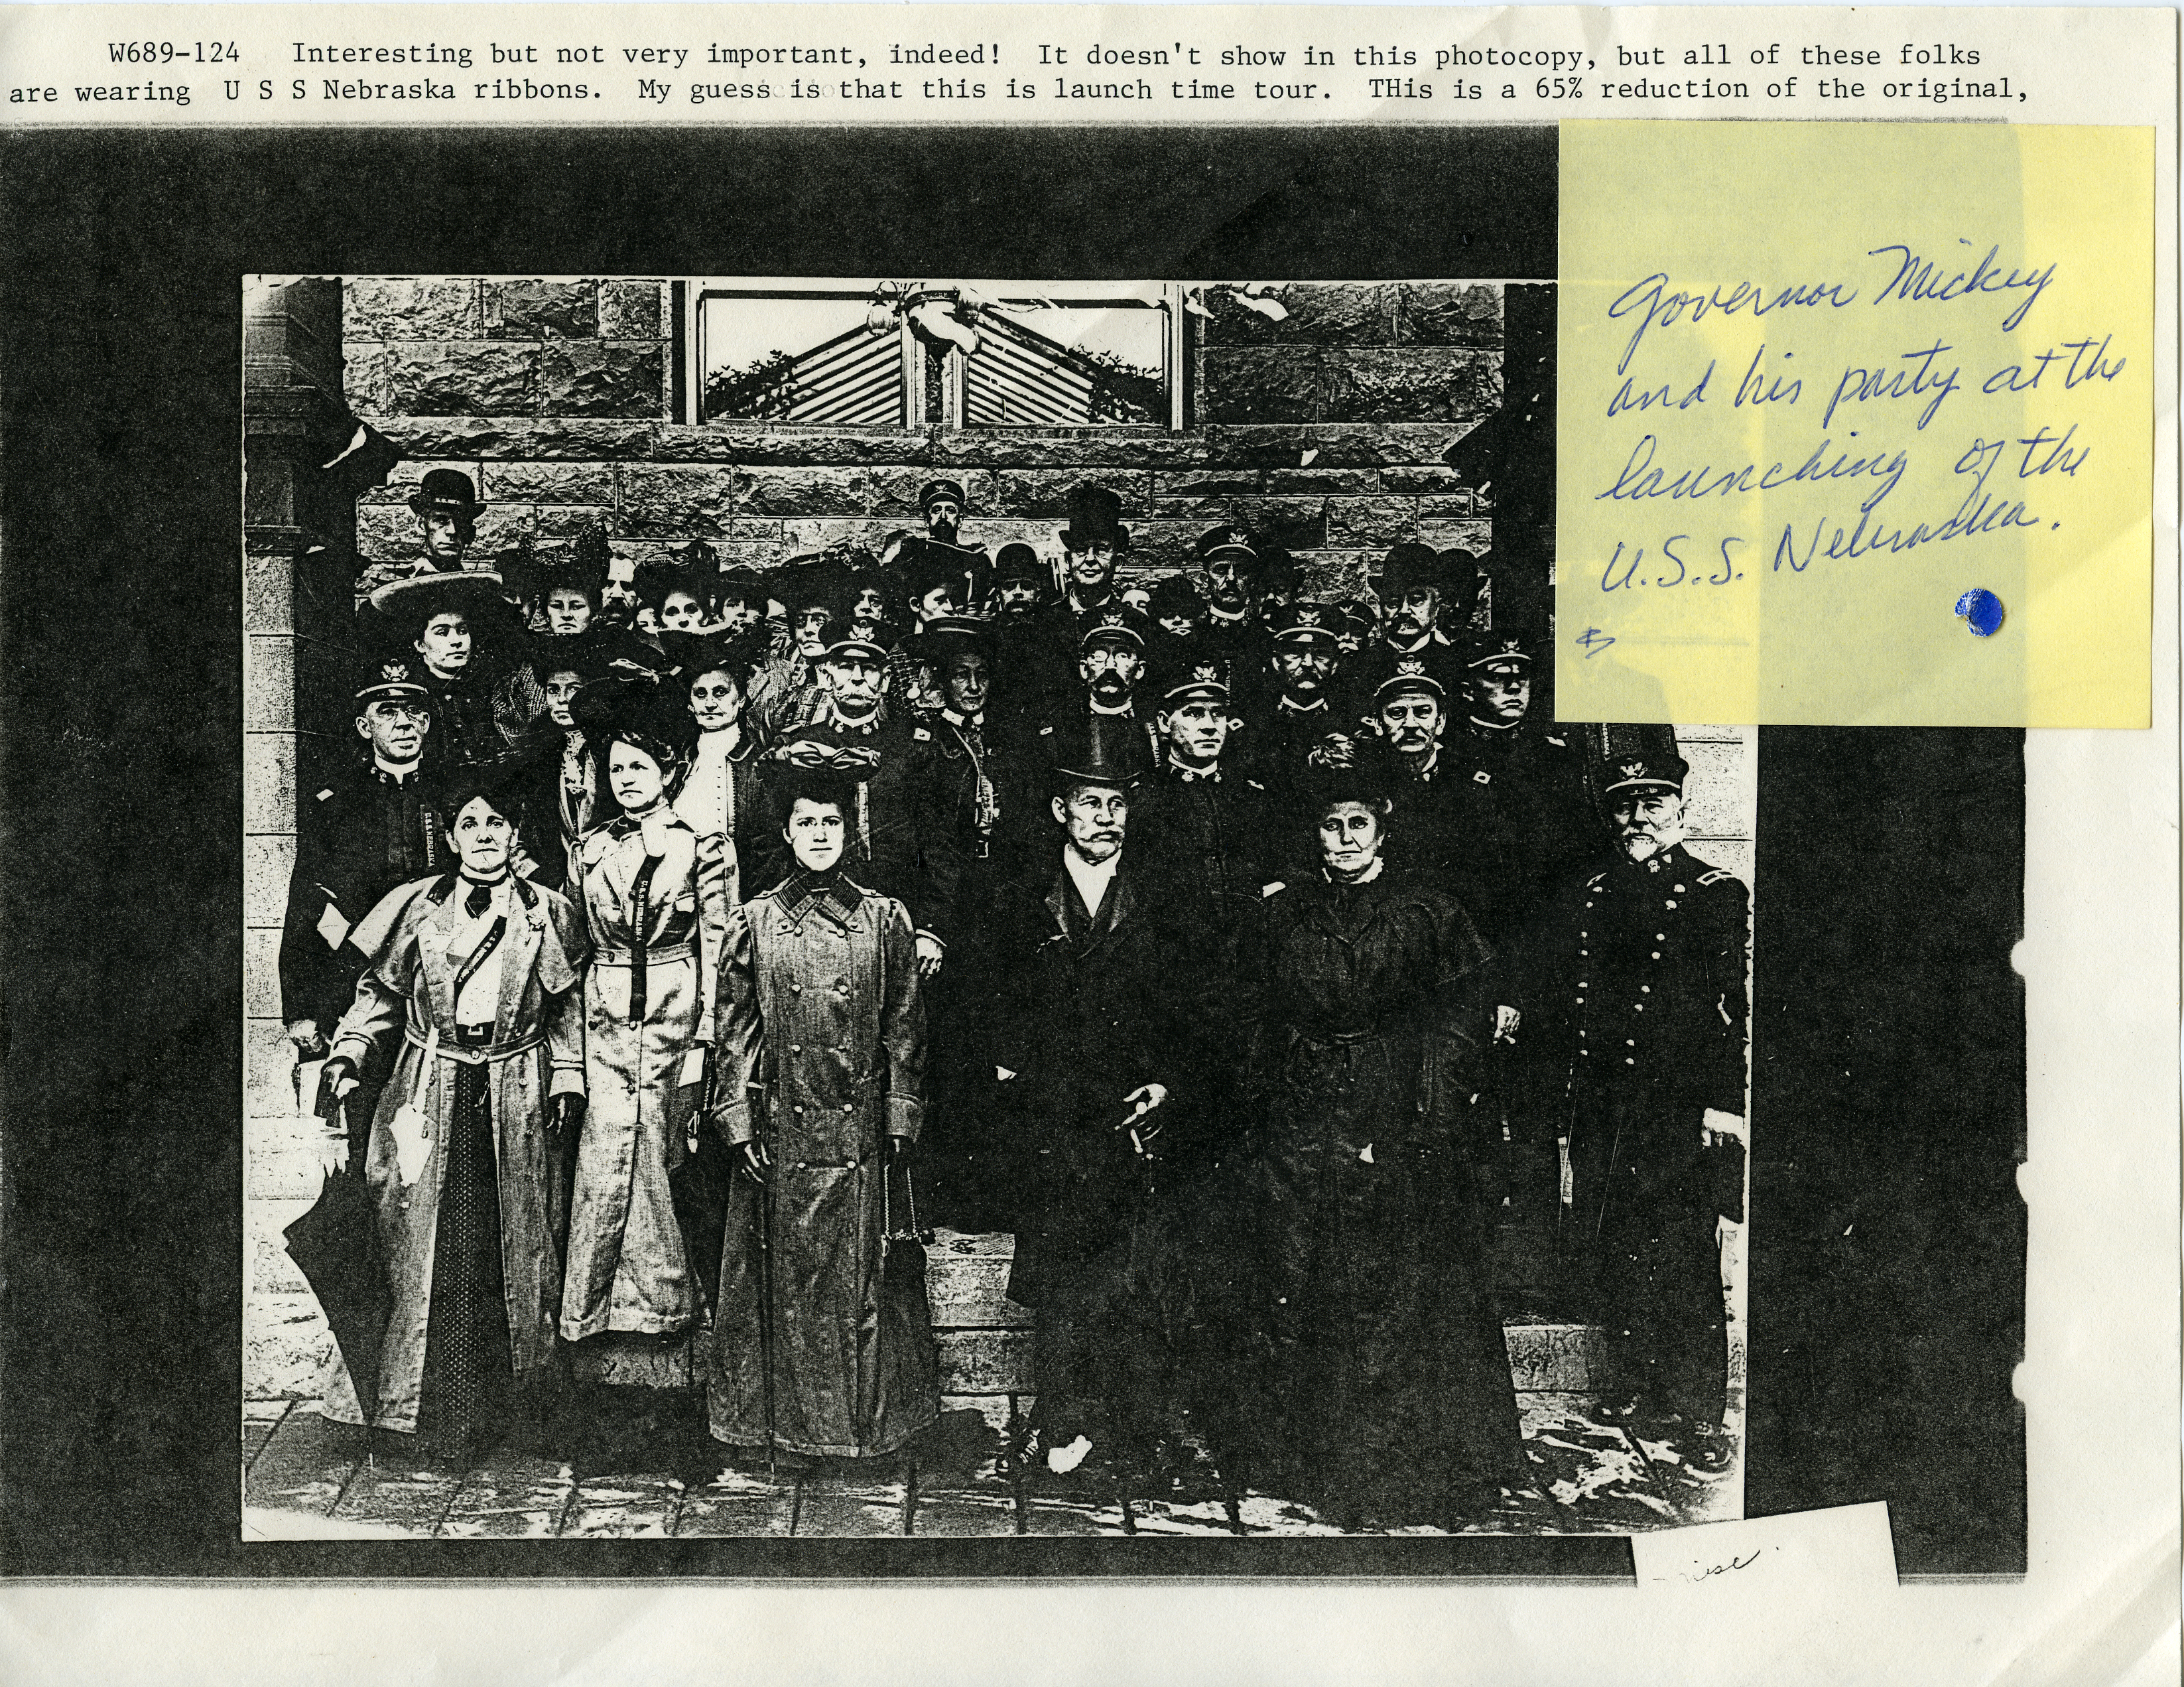 W689-124 Interesting but not very important, indeed! It doesn't show in this photocopy, but all of these folks
are wearing U S S Nebraska ribbons. My guess is that this is launch time tour. THis is a 65% reduction of the original,
Governor Mickey
and his party at the
launching of the
U.S.S. Nebraska.
U.S.S. NEBRASKA
U.S.S. NEBRASKA